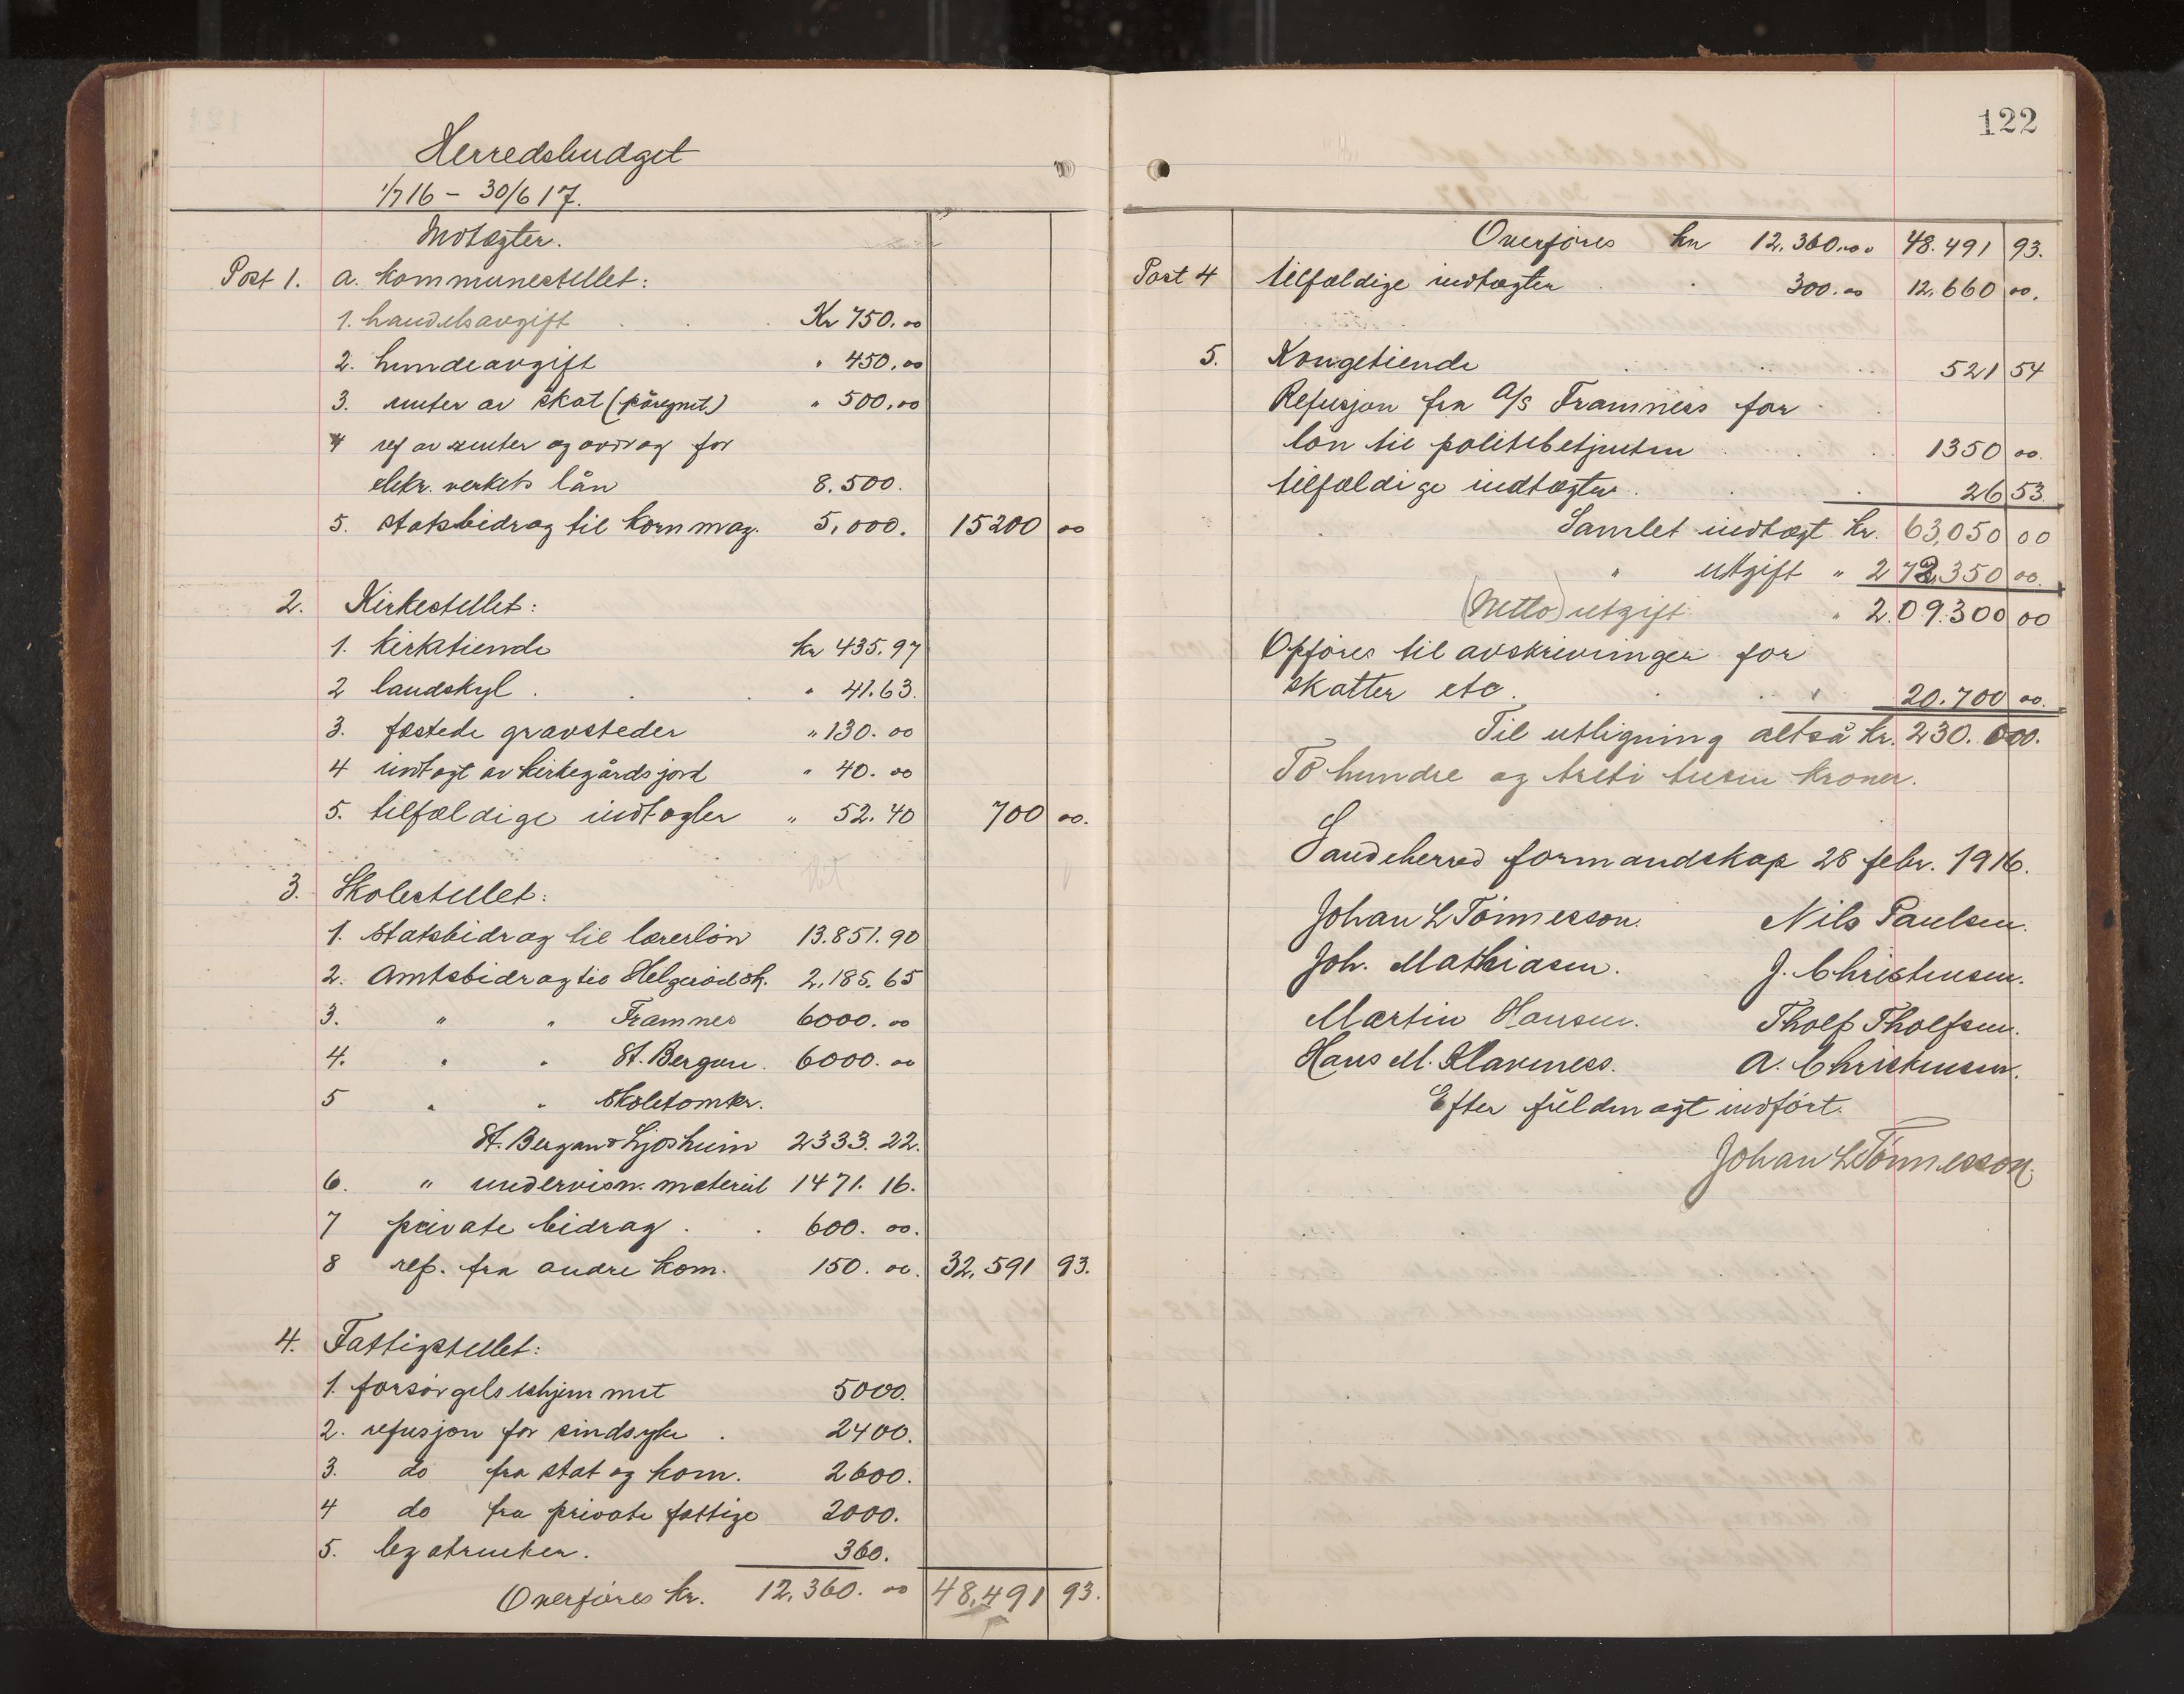 Herredsbudget
1/7 16 – 30/6 17.
Indtægter.
Post 1. a. kommunestellet:
1. handelsavgift . . . Kr 750.00
2. hundeavgift " 450.00
3. renter av skat (påregnet) " 500.00
4 ref av renter og avdrag for
elektr. verkets lån 8.500.
5. statsbidrag til kornmag. 5,000. 15200 00
2. Kirkestellet:
1. kirketiende kr 435.97
2 landskyl . . . " 41.63.
3. fæstede gravsteder " 130.00
4 indtægt av kirkegårdsjord " 40.00
5. tilfældige indtægter " 52.40 700 00.
3. Skolestellet:
1. Statsbidrag til lærerløn 13.851.90
2. Amtsbidrag til Helgerød sk. 2.185.65
3. " " Framnes 6000.00
4. " " St. Bergan. 6000.00
5 " " Skoletomter.
St. Bergan & Ljosheim 2333.22.
6. " undervisn. materiel 1471.16.
7 private bidrag . . 600.00.
8 ref. fra andre kom. 150.00. 32,591 93.
4. Fattigstellet:
1. forsørgelseshjemmet 5000.
2. refusjon for sindsyke . 2400.
3. do fra stat og kom. 2600.
4 do fra private fattige 2000.
5. legatrenter. 360.
Overføres kr. 12,360.00 48,491 93.
122
Overføres kr 12,360.00 48.491 93.
Post 4 tilfældige indtægter . . 300.00 12.660 00.
5. Kongetiende 521 54
Refusjon fra A/S Framnæs for
løn til politibetjenten 1350 00.
tilfældige indtægter . . . 26 53.
Samlet indtægt kr. 63,050 00
" utgift " 272,350 00.
(Netto) utgift " 209.300 00
Opføres til avskrivninger for
skatter etc. . . " 20.700 00.
Til utligning altså kr. 230.000.
To hundre og treti tusen kroner.
Sandeherred formandskap 28 febr. 1916.
Johan L Tønnesson. Nils Paulsen.
Joh. Mathiasen. J. Christensen.
Martin Hansen. Tholf Tholfsen.
Hans M. Klavness. A. Christensen.
Efter fuldmagt indført.
Johan L Tønnesson.